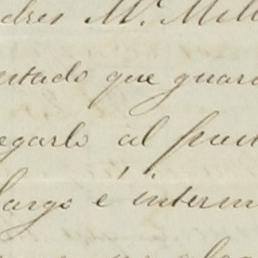 dres Mr. Mill
ntado que guar
egarlo al pue
largo é interm